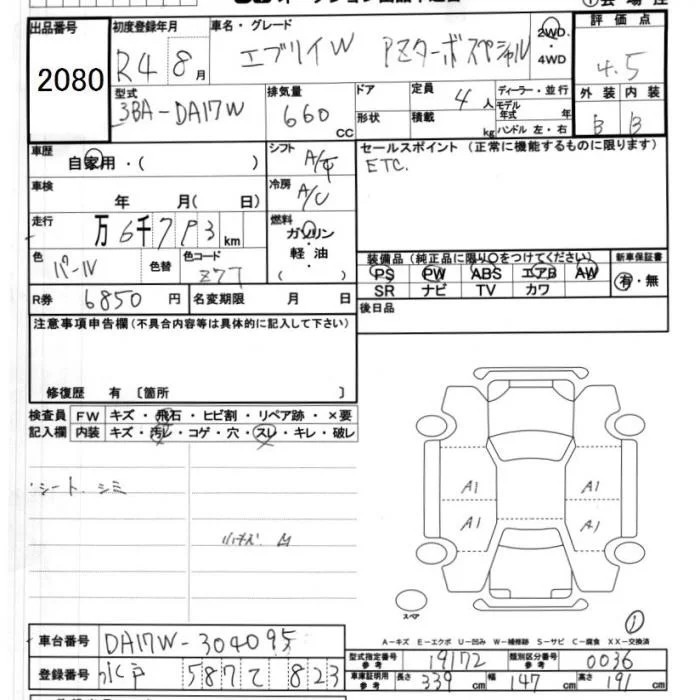 出品番号 2080
初度登録年月 R4 8月
車名・グレード エブリイW PZターボスペシャル
2WD・4WD
評価点 4.5
外装 B 内装 B
型式 3BA-DA17W
排気量 660 CC
ドア 形状
定員 4人
積載 kg
ディーラー・並行
モデル年式 年
ハンドル 左・右
車歴 自家用・( )
シフト A/T
セールスポイント(正常に機能するものに限ります)
ETC.
車検 年 月( 日)
冷房 A/C
走行 万6千793km
燃料 ガソリン 軽油・( )
色 パール 色替 色コード Z7T
装備品(純正品に限り○をつけてください)
新車保証書 有・無
PS PW ABS エアB AW
SR ナビ TV カワ
R券 6850円 名変期限 月 日
後日品
注意事項申告欄(不具合内容等は具体的に記入して下さい)
修復歴 有〔箇所 〕
検査員記入欄
FW キズ・飛石・ヒビ割・リペア跡・×要
内装 キズ・汚レ・コゲ・穴・スレ・キレ・破レ
・シート、シミ
小キズ M
A1 A1
A1 A1
スペア
1
A-キズ E-エクボ U-凹み W-補修跡 S-サビ C-腐食 XX-交換済
車台番号 DA17W-304095
登録番号 水戸 587 て 823
型式指定番号 参考 19172 類別区分番号 参考 0036
車庫証明用 参考 長さ 339cm 幅 147cm 高さ 191cm